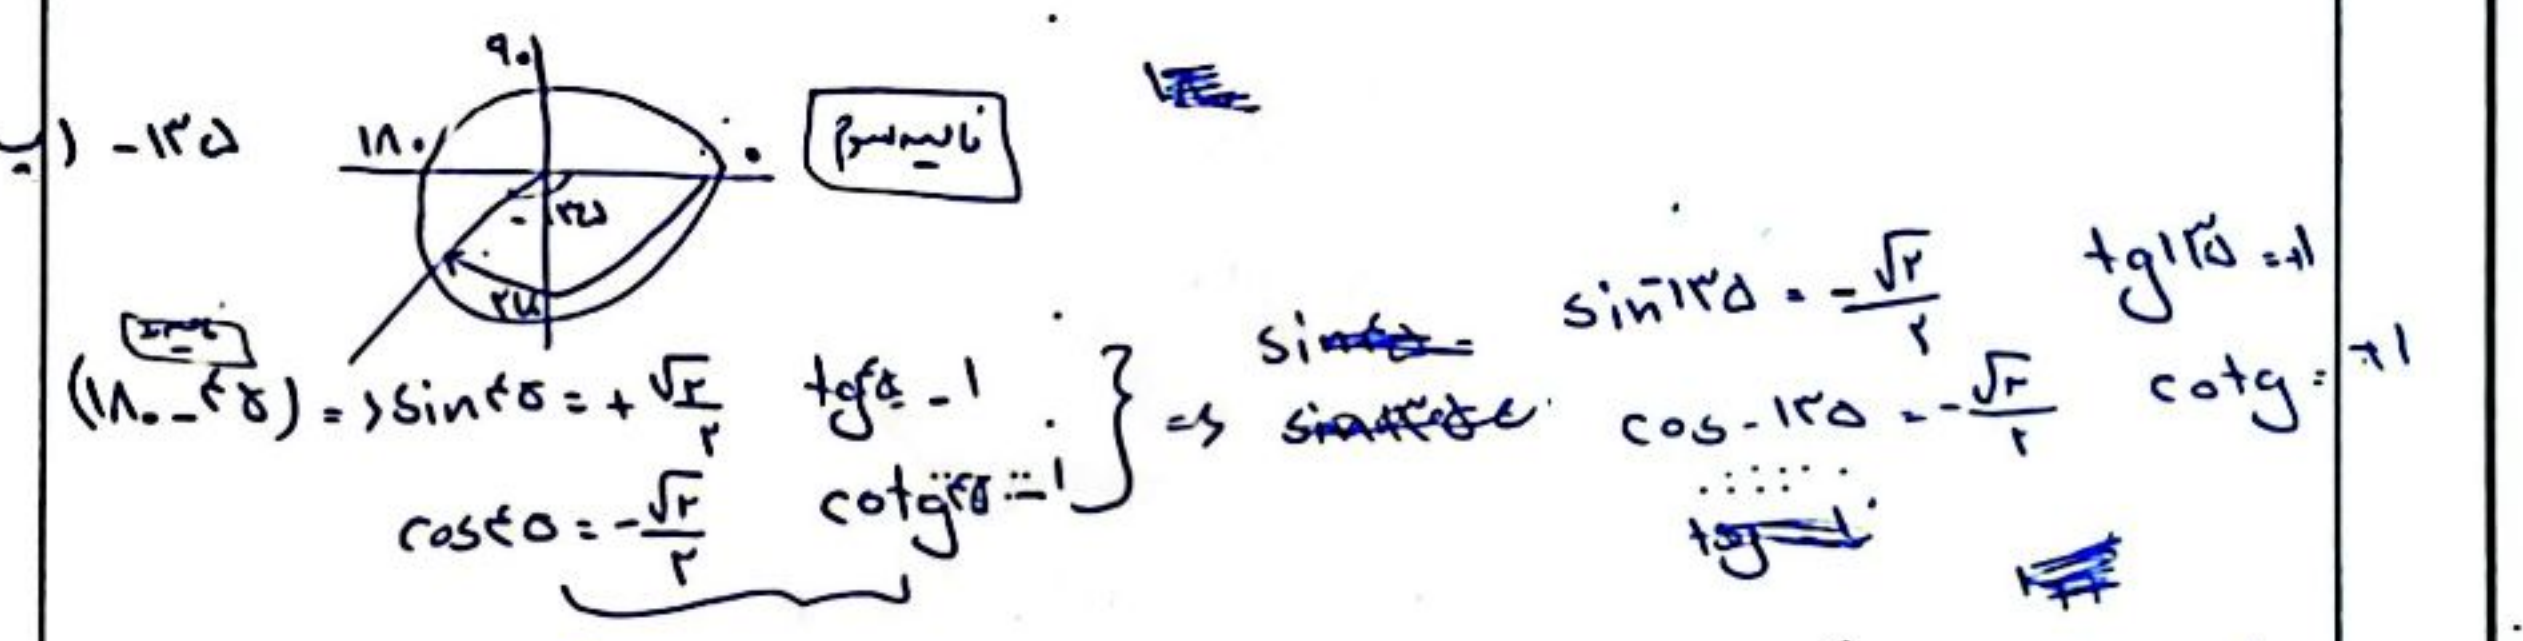 ب) -۱۳۵
۹۰
۱۸۰
۰
-۱۳۵
۲۷۰
ناحیه سوم
(۱۸۰-۴۵) => sin۴۵ = +√۲/۲ tg۴۵ = -1
cos۴۵ = -√۲/۲ cotg۴۵ = -1
=> sin-۱۳۵ = -√۲/۲ tg۱۳۵ = +1
cos-۱۳۵ = -√۲/۲ cotg = +1